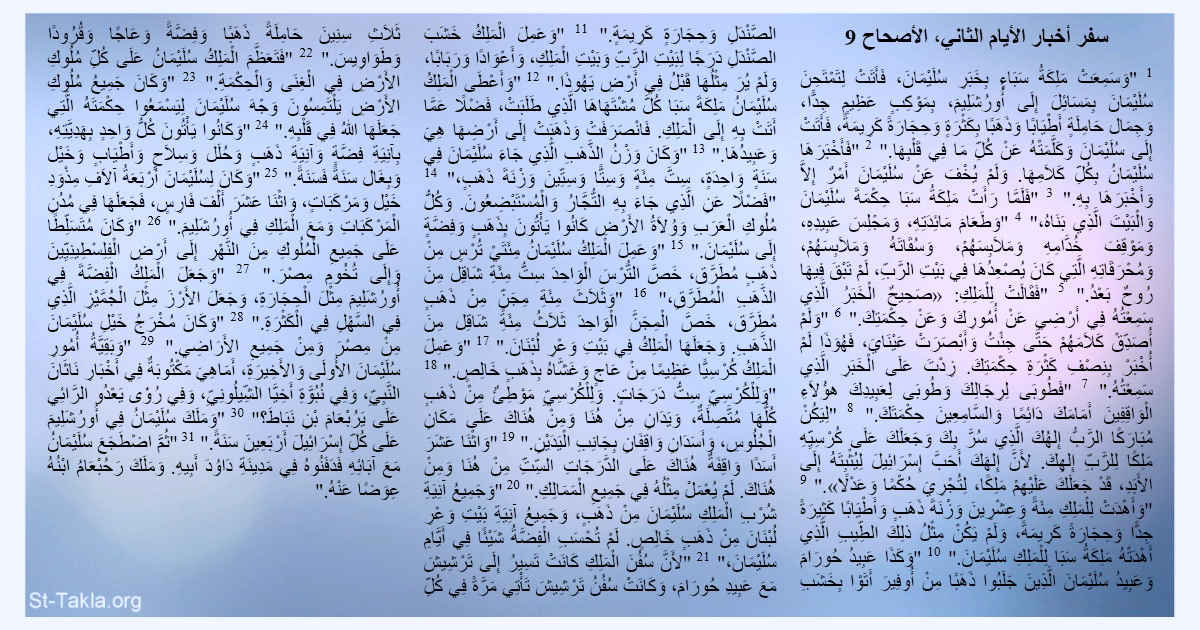 سفر أخبار الأيام الثاني، الأصحاح 9
1 "وَسَمِعَتْ مَلِكَةُ سَبَاءٍ بِخَبَرِ سُلَيْمَانَ، فَأَتَتْ لِتَمْتَحِنَ
سُلَيْمَانَ بِمَسَائِلَ إِلَى أُورُشَلِيمَ، بِمَوْكِبٍ عَظِيمٍ جِدًّا،
وَجِمَال حَامِلَةٍ أَطْيَابًا وَذَهَبًا بِكَثْرَةٍ وَحِجَارَةً كَرِيمَةً، فَأَتَتْ
إِلَى سُلَيْمَانَ وَكَلَّمَتْهُ عَنْ كُلِّ مَا فِي قَلْبِهَا." 2 "فَأَخْبَرَهَا
سُلَيْمَانُ بِكُلِّ كَلاَمِهَا. وَلَمْ يُخْفَ عَنْ سُلَيْمَانَ أَمْرٌ إِلاَّ
وَأَخْبَرَهَا بِهِ." 3 "فَلَمَّا رَأَتْ مَلِكَةُ سَبَا حِكْمَةَ سُلَيْمَانَ
وَالْبَيْتَ الَّذِي بَنَاهُ،" 4 "وَطَعَامَ مَائِدَتِهِ، وَمَجْلِسَ عَبِيدِهِ،
وَمَوْقِفَ خُدَّامِهِ وَمَلاَبِسَهُمْ، وَسُقَاتَهُ وَمَلاَبِسَهُمْ،
وَمُحْرَقَاتِهِ الَّتِي كَانَ يُصْعِدُهَا فِي بَيْتِ الرَّبِّ، لَمْ تَبْقَ فِيهَا
رُوحٌ بَعْدُ." 5 "فَقَالَتْ لِلْمَلِكِ: «صَحِيحٌ الْخَبَرُ الَّذِي
سَمِعْتُهُ فِي أَرْضِي عَنْ أُمُورِكَ وَعَنْ حِكْمَتِكَ." 6 "وَلَمْ
أُصَدِّقْ كَلاَمَهُمْ حَتَّى جِئْتُ وَأَبْصَرَتْ عَيْنَايَ، فَهُوَذَا لَمْ
أُخْبَرْ بِنِصْفِ كَثْرَةِ حِكْمَتِكَ. زِدْتَ عَلَى الْخَبَرِ الَّذِي
سَمِعْتُهُ." 7 "فَطُوبَى لِرِجَالِكَ وَطُوبَى لِعَبِيدِكَ هؤُلاَءِ
الْوَاقِفِينَ أَمَامَكَ دَائِمًا وَالسَّامِعِينَ حِكْمَتَكَ." 8 "لِيَكُنْ
مُبَارَكًا الرَّبُّ إِلهُكَ الَّذِي سُرَّ بِكَ وَجَعَلَكَ عَلَى كُرْسِيِّهِ
مَلِكًا لِلرَّبِّ إِلهِكَ. لأَنَّ إِلهَكَ أَحَبَّ إِسْرَائِيلَ لِيُثْبِتَهُ إِلَى
الأَبَدِ، قَدْ جَعَلَكَ عَلَيْهِمْ مَلِكًا، لِتُجْرِيَ حُكْمًا وَعَدْلًا»." 9
"وَأَهْدَتْ لِلْمَلِكِ مِئَةً وَعِشْرِينَ وَزْنَةَ ذَهَبٍ وَأَطْيَابًا كَثِيرَةً
جِدًّا وَحِجَارَةً كَرِيمَةً، وَلَمْ يَكُنْ مِثْلُ ذلِكَ الطِّيبِ الَّذِي
أَهْدَتْهُ مَلِكَةُ سَبَا لِلْمَلِكِ سُلَيْمَانَ." 10 "وَكَذَا عَبِيدُ حُورَامَ
وَعَبِيدُ سُلَيْمَانَ الَّذِينَ جَلَبُوا ذَهَبًا مِنْ أُوفِيرَ أَتَوْا بِخَشَبِ
الصَّنْدَلِ وَحِجَارَةٍ كَرِيمَةٍ." 11 "وَعَمِلَ الْمَلِكُ خَشَبَ
الصَّنْدَلِ دَرَجًا لِبَيْتِ الرَّبِّ وَبَيْتِ الْمَلِكِ، وَأَعْوَادًا وَرَبَابًا،
وَلَمْ يُرَ مِثْلُهَا قَبْلُ فِي أَرْضِ يَهُوذَا." 12 "وَأَعْطَى الْمَلِكُ
سُلَيْمَانُ مَلِكَةَ سَبَا كُلَّ مُشْتَهَاهَا الَّذِي طَلَبَتْ، فَضْلًا عَمَّا
أَتَتْ بِهِ إِلَى الْمَلِكِ. فَانْصَرَفَتْ وَذَهَبَتْ إِلَى أَرْضِهَا هِيَ
وَعَبِيدُهَا." 13 "وَكَانَ وَزْنُ الذَّهَبِ الَّذِي جَاءَ سُلَيْمَانَ فِي
سَنَةٍ وَاحِدَةٍ، سِتَّ مِئَةٍ وَسِتًّا وَسِتِّينَ وَزْنَةَ ذَهَبٍ،" 14
"فَضْلًا عَنِ الَّذِي جَاءَ بِهِ التُّجَّارُ وَالْمُسْتَبْضِعُونَ. وَكُلُّ
مُلُوكِ الْعَرَبِ وَوُلاَةُ الأَرْضِ كَانُوا يَأْتُونَ بِذَهَبٍ وَفِضَّةٍ
إِلَى سُلَيْمَانَ." 15 "وَعَمِلَ الْمَلِكُ سُلَيْمَانُ مِئَتَيْ تُرْسٍ مِنْ
ذَهَبٍ مُطَرَّق، خَصَّ التُّرْسَ الْوَاحِدَ سِتُّ مِئَةِ شَاقِل مِنَ
الذَّهَبِ الْمُطَرَّقِ،" 16 "وَثَلاَثَ مِئَةِ مِجَنٍّ مِنْ ذَهَبٍ
مُطَرَّق، خَصَّ الْمِجَنَّ الْوَاحِدَ ثَلاَثُ مِئَةِ شَاقِل مِنَ
الذَّهَبِ. وَجَعَلَهَا الْمَلِكُ فِي بَيْتِ وَعْرِ لُبْنَانَ." 17 "وَعَمِلَ
الْمَلِكُ كُرْسِيًّا عَظِيمًا مِنْ عَاجٍ وَغَشَّاهُ بِذَهَبٍ خَالِصٍ." 18
"وَلِلْكُرْسِيِّ سِتُّ دَرَجَاتٍ. وَلِلْكُرْسِيِّ مَوْطِئٌ مِنْ ذَهَبٍ
كُلُّهَا مُتَّصِلَةٌ، وَيَدَانِ مِنْ هُنَا وَمِنْ هُنَاكَ عَلَى مَكَانِ
الْجُلُوسِ، وَأَسَدَانِ وَاقِفَانِ بِجَانِبِ الْيَدَيْنِ." 19 "وَاثْنَا عَشَرَ
أَسَدًا وَاقِفَةٌ هُنَاكَ عَلَى الدَّرَجَاتِ السِّتِّ مِنْ هُنَا وَمِنْ
هُنَاكَ. لَمْ يُعْمَلْ مِثْلُهُ فِي جَمِيعِ الْمَمَالِكِ." 20 "وَجَمِيعُ آنِيَةِ
شُرْبِ الْمَلِكِ سُلَيْمَانَ مِنْ ذَهَبٍ، وَجَمِيعُ آنِيَةِ بَيْتِ وَعْرِ
لُبْنَانَ مِنْ ذَهَبٍ خَالِصٍ. لَمْ تُحْسَبِ الْفِضَّةُ شَيْئًا فِي أَيَّامِ
سُلَيْمَانَ،" 21 "لأَنَّ سُفُنَ الْمَلِكِ كَانَتْ تَسِيرُ إِلَى تَرْشِيشَ
مَعَ عَبِيدِ حُورَامَ، وَكَانَتْ سُفُنُ تَرْشِيشَ تَأْتِي مَرَّةً فِي كُلِّ
ثَلاَثِ سِنِينَ حَامِلَةً ذَهَبًا وَفِضَّةً وَعَاجًا وَقُرُودًا
وَطَوَاوِيسَ." 22 "فَتَعَظَّمَ الْمَلِكُ سُلَيْمَانُ عَلَى كُلِّ مُلُوكِ
الأَرْضِ فِي الْغِنَى وَالْحِكْمَةِ." 23 "وَكَانَ جَمِيعُ مُلُوكِ
الأَرْضِ يَلْتَمِسُونَ وَجْهَ سُلَيْمَانَ لِيَسْمَعُوا حِكْمَتَهُ الَّتِي
جَعَلَهَا اللهُ فِي قَلْبِهِ." 24 "وَكَانُوا يَأْتُونَ كُلُّ وَاحِدٍ بِهَدِيَّتِهِ،
بِآنِيَةِ فِضَّةٍ وَآنِيَةِ ذَهَبٍ وَحُلَل وَسِلاَحٍ وَأَطْيَابٍ وَخَيْل
وَبِغَال سَنَةً فَسَنَةً." 25 "وَكَانَ لِسُلَيْمَانَ أَرْبَعَةُ آلاَفِ مِذْوَدِ
خَيْل وَمَرْكَبَاتٍ، وَاثْنَا عَشَرَ أَلْفَ فَارِسٍ، فَجَعَلَهَا فِي مُدُنِ
الْمَرْكَبَاتِ وَمَعَ الْمَلِكِ فِي أُورُشَلِيمَ." 26 "وَكَانَ مُتَسَلِّطًا
عَلَى جَمِيعِ الْمُلُوكِ مِنَ النَّهْرِ إِلَى أَرْضِ الْفِلِسْطِينِيِّينَ
وَإِلَى تُخُومِ مِصْرَ." 27 "وَجَعَلَ الْمَلِكُ الْفِضَّةَ فِي
أُورُشَلِيمَ مِثْلَ الْحِجَارَةِ، وَجَعَلَ الأَرْزَ مِثْلَ الْجُمَّيْزِ الَّذِي
فِي السَّهْلِ فِي الْكَثْرَةِ." 28 "وَكَانَ مُخْرَجُ خَيْلِ سُلَيْمَانَ
مِنْ مِصْرَ وَمِنْ جَمِيعِ الأَرَاضِي." 29 "وَبَقِيَّةُ أُمُورِ
سُلَيْمَانَ الأُولَى وَالأَخِيرَةِ، أَمَاهِيَ مَكْتُوبَةٌ فِي أَخْبَارِ نَاثَانَ
النَّبِيِّ، وَفِي نُبُوَّةِ أَخِيَّا الشِّيلُونِيِّ، وَفِي رُؤَى يَعْدُو الرَّائِي
عَلَى يَرُبْعَامَ بْنِ نَبَاطَ؟" 30 "وَمَلَكَ سُلَيْمَانُ فِي أُورُشَلِيمَ
عَلَى كُلِّ إِسْرَائِيلَ أَرْبَعِينَ سَنَةً." 31 "ثُمَّ اضْطَجَعَ سُلَيْمَانُ
مَعَ آبَائِهِ فَدَفَنُوهُ فِي مَدِينَةِ دَاوُدَ أَبِيهِ. وَمَلَكَ رَحُبْعَامُ ابْنُهُ
عِوَضًا عَنْهُ."
St-Takla.org